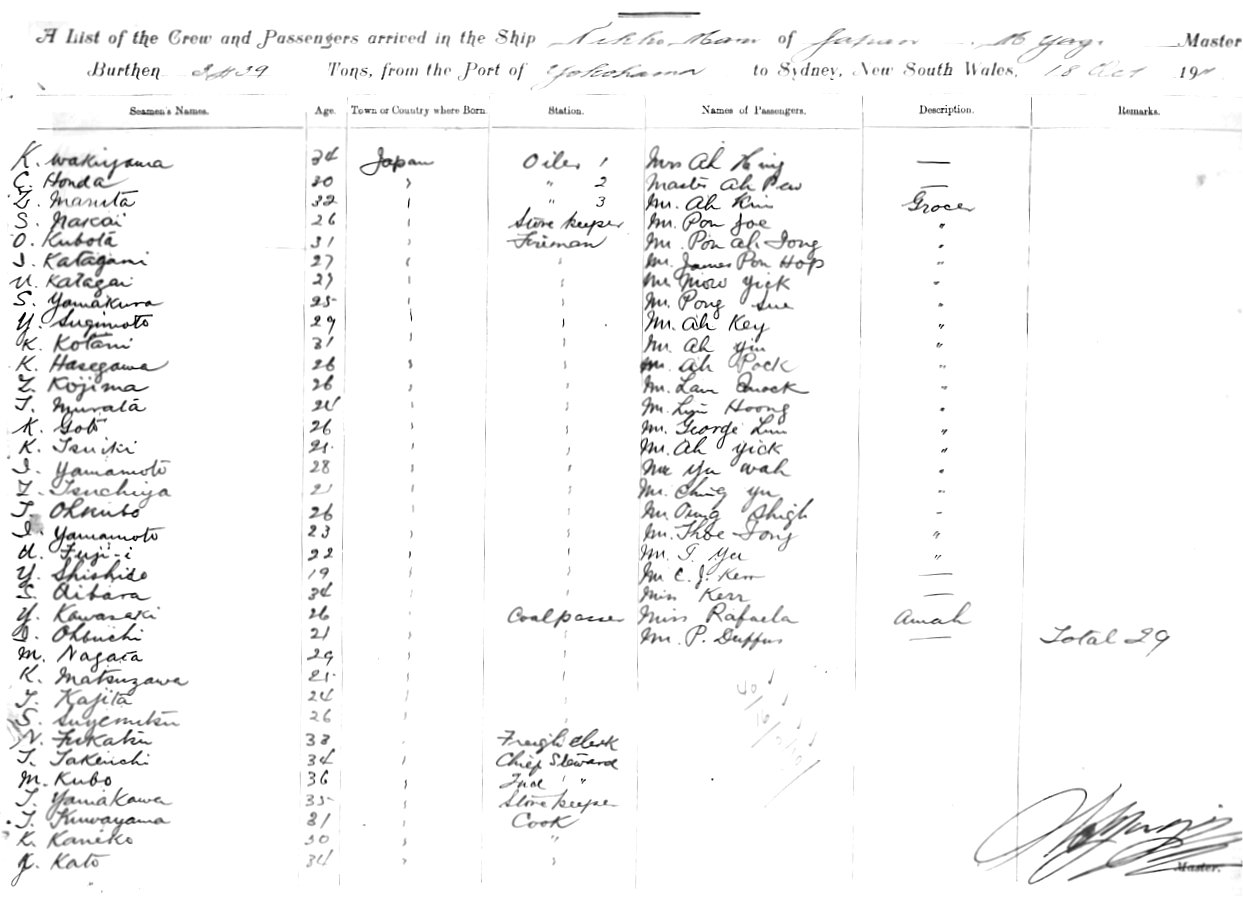 A List of the Crew and Passengers arrived in the Ship Nikko Maru of Japan M Yagi Master
Burthen 3439 Tons, from the Port of Yokohama to Sydney, New South Wales, 18 Oct 19
Seamen's Names. Age. Town or Country where Born. Station. Names of Passengers. Description. Remarks.
K. Wakiyama 34 Japan Oiler 1 Mrs Ah King —
C. Honda 30 " 2 Master Ah Pew —
Z. Maruta 32 " 3 Mr. Ah Kin Grocer
S. Nakai 26 Store keeper Mr. Pon Joe "
O. Kubota 31 Fireman Mr. Pon Ah Tong "
I. Katagami 27 Mr. James Pon Hop "
U. Katagai 27 Mr. Mow Yick "
S. Yamakura 25 Mr. Pong Sue "
Y. Sugimoto 29 Mr. Ah Key "
K. Kotani 31 Mr. Ah Yin "
K. Hasegawa 26 Mr. Ah Pock "
Z. Kojima 26 Mr. Lau "
T. Murata 24 Mr. Hoong "
K. Goto 26 Mr. George "
K. Tsuiki Mr. Ah Yick "
I. Yamamoto 28 Mr Yu Wah "
Z. Tsuchiya 21 Mr. Ching Yu "
T. Ohkubo 26 Mr. Shigh "
I. Yamamoto 23 Mr. Thoe Tong "
U. Fuji-i 22 Mr. T. Yu "
Y. Shishido 19 Mr C. J. Kerr —
S. Aibara 34 Miss Kerr —
Y. Kawasaki 26 Coalpasser Miss Rafaela Amah
Ohbuchi 21 Mr. P. Duffus — Total 29
M. Nagata 29
K. Matsuzawa
T. Kajita 24
S. Suyemitsu 26
N. Fukatsu 33 Freight Clerk
T. Takeuchi 34 Chief Steward
M. Kubo 36 2nd "
T. Yamakawa 35 Store keeper
T. Kuwayama 31 Cook
K. Kaneko 30 "
K. Kato 34
Master.